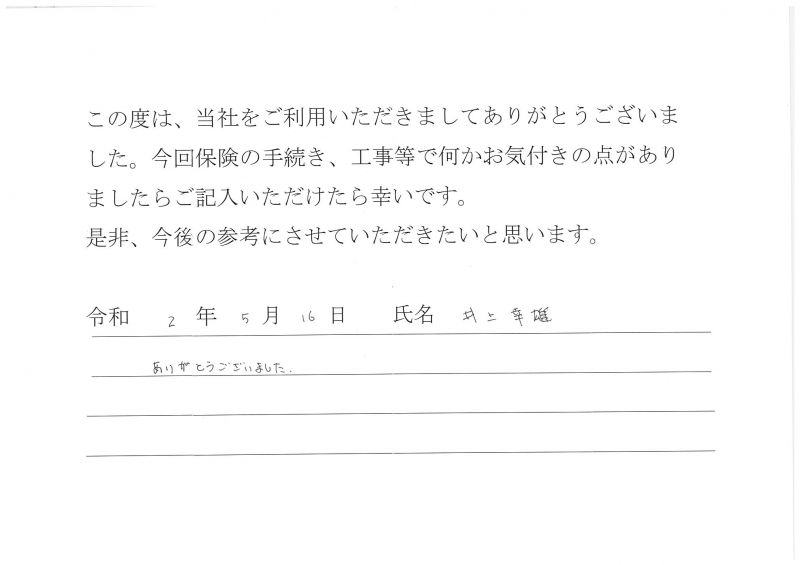 この度は、当社をご利用いただきましてありがとうございま
した。今回保険の手続き、工事等で何かお気付きの点があり
ましたらご記入いただけたら幸いです。
是非、今後の参考にさせていただきたいと思います。
令和 2 年 5 月 16 日 氏名 井上 幸雄
ありがとうございました.